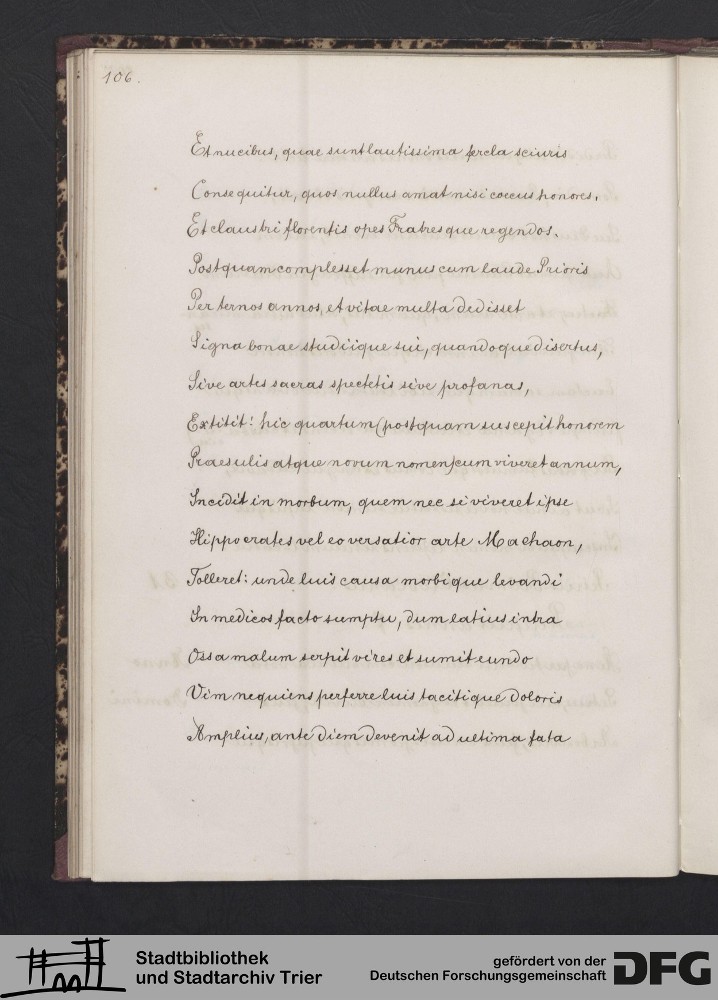 106.
Et nucibus, quae sunt lautissima fercla sciuris
Consequitur, quos nullus amat nisi coecus honores.
Et claustri florentis opes Fratresque regendos.
Postquam complesset munus cum laude Prioris
Per ternos annos, et vitae multa dedisset
Signa bonae studiique sui, quandoque disertus,
Sive artes sacras spectetis sive profanas,
Extitit: hic quartum (postquam suscepit honorem
Praesulis atque novum nomen) cum viveret annum,
Incidit in morbum, quem nec si viveret ipse
Hippocrates vel eo versatior arte Machaon,
Tolleret: unde luis causa morbique levandi
In medicos facto sumptu, dum latius intra
Ossa malum serpit vires et sumit eundo
Vim nequiens perferre luis tacitique doloris
Amplius, ante diem devenit ad ultima fata
Stadtbibliothek
und Stadtarchiv Trier
gefördert von der
Deutschen Forschungsgemeinschaft
DFG